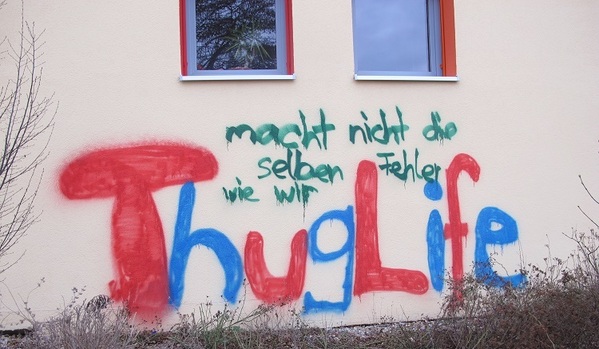 macht nicht die
selben Fehler
wie wir
ThugLife